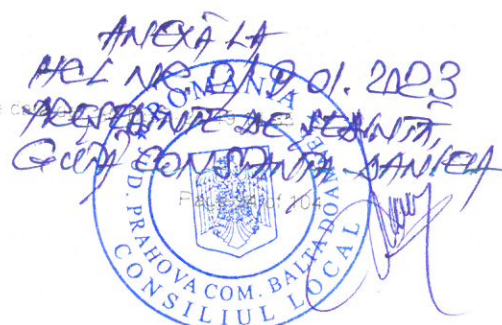 ANEXĂ LA
HCL NR. 2/9.01.2023
PREȘEDINTE DE ȘEDINȚĂ,
GUȚĂ CONSTANȚA DANIELA
ROMÂNIA
JUD. PRAHOVA COM. BALTA DOAMNEI
CONSILIUL LOCAL
of 104